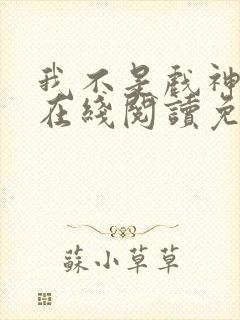 我不是戲神
在綫閱讀免
蘇小草草